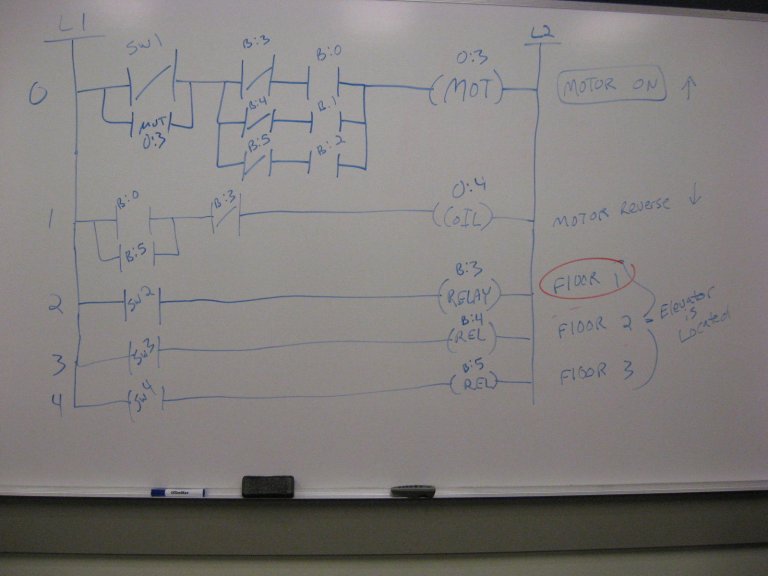 L1 L2
SW1 B:3 B:0 O:3
0 (MOT) MOTOR ON ↑
MOT B:4 B:1
O:3 B:5 B:2
B:0 B:3 O:4
1 (COIL) MOTOR Reverse ↓
B:5
B:3 FLOOR 1
2 SW2 (RELAY)
B:4 FLOOR 2 = Elevator is Located
3 SW3 (REL)
B:5 FLOOR 3
4 SW4 (REL)